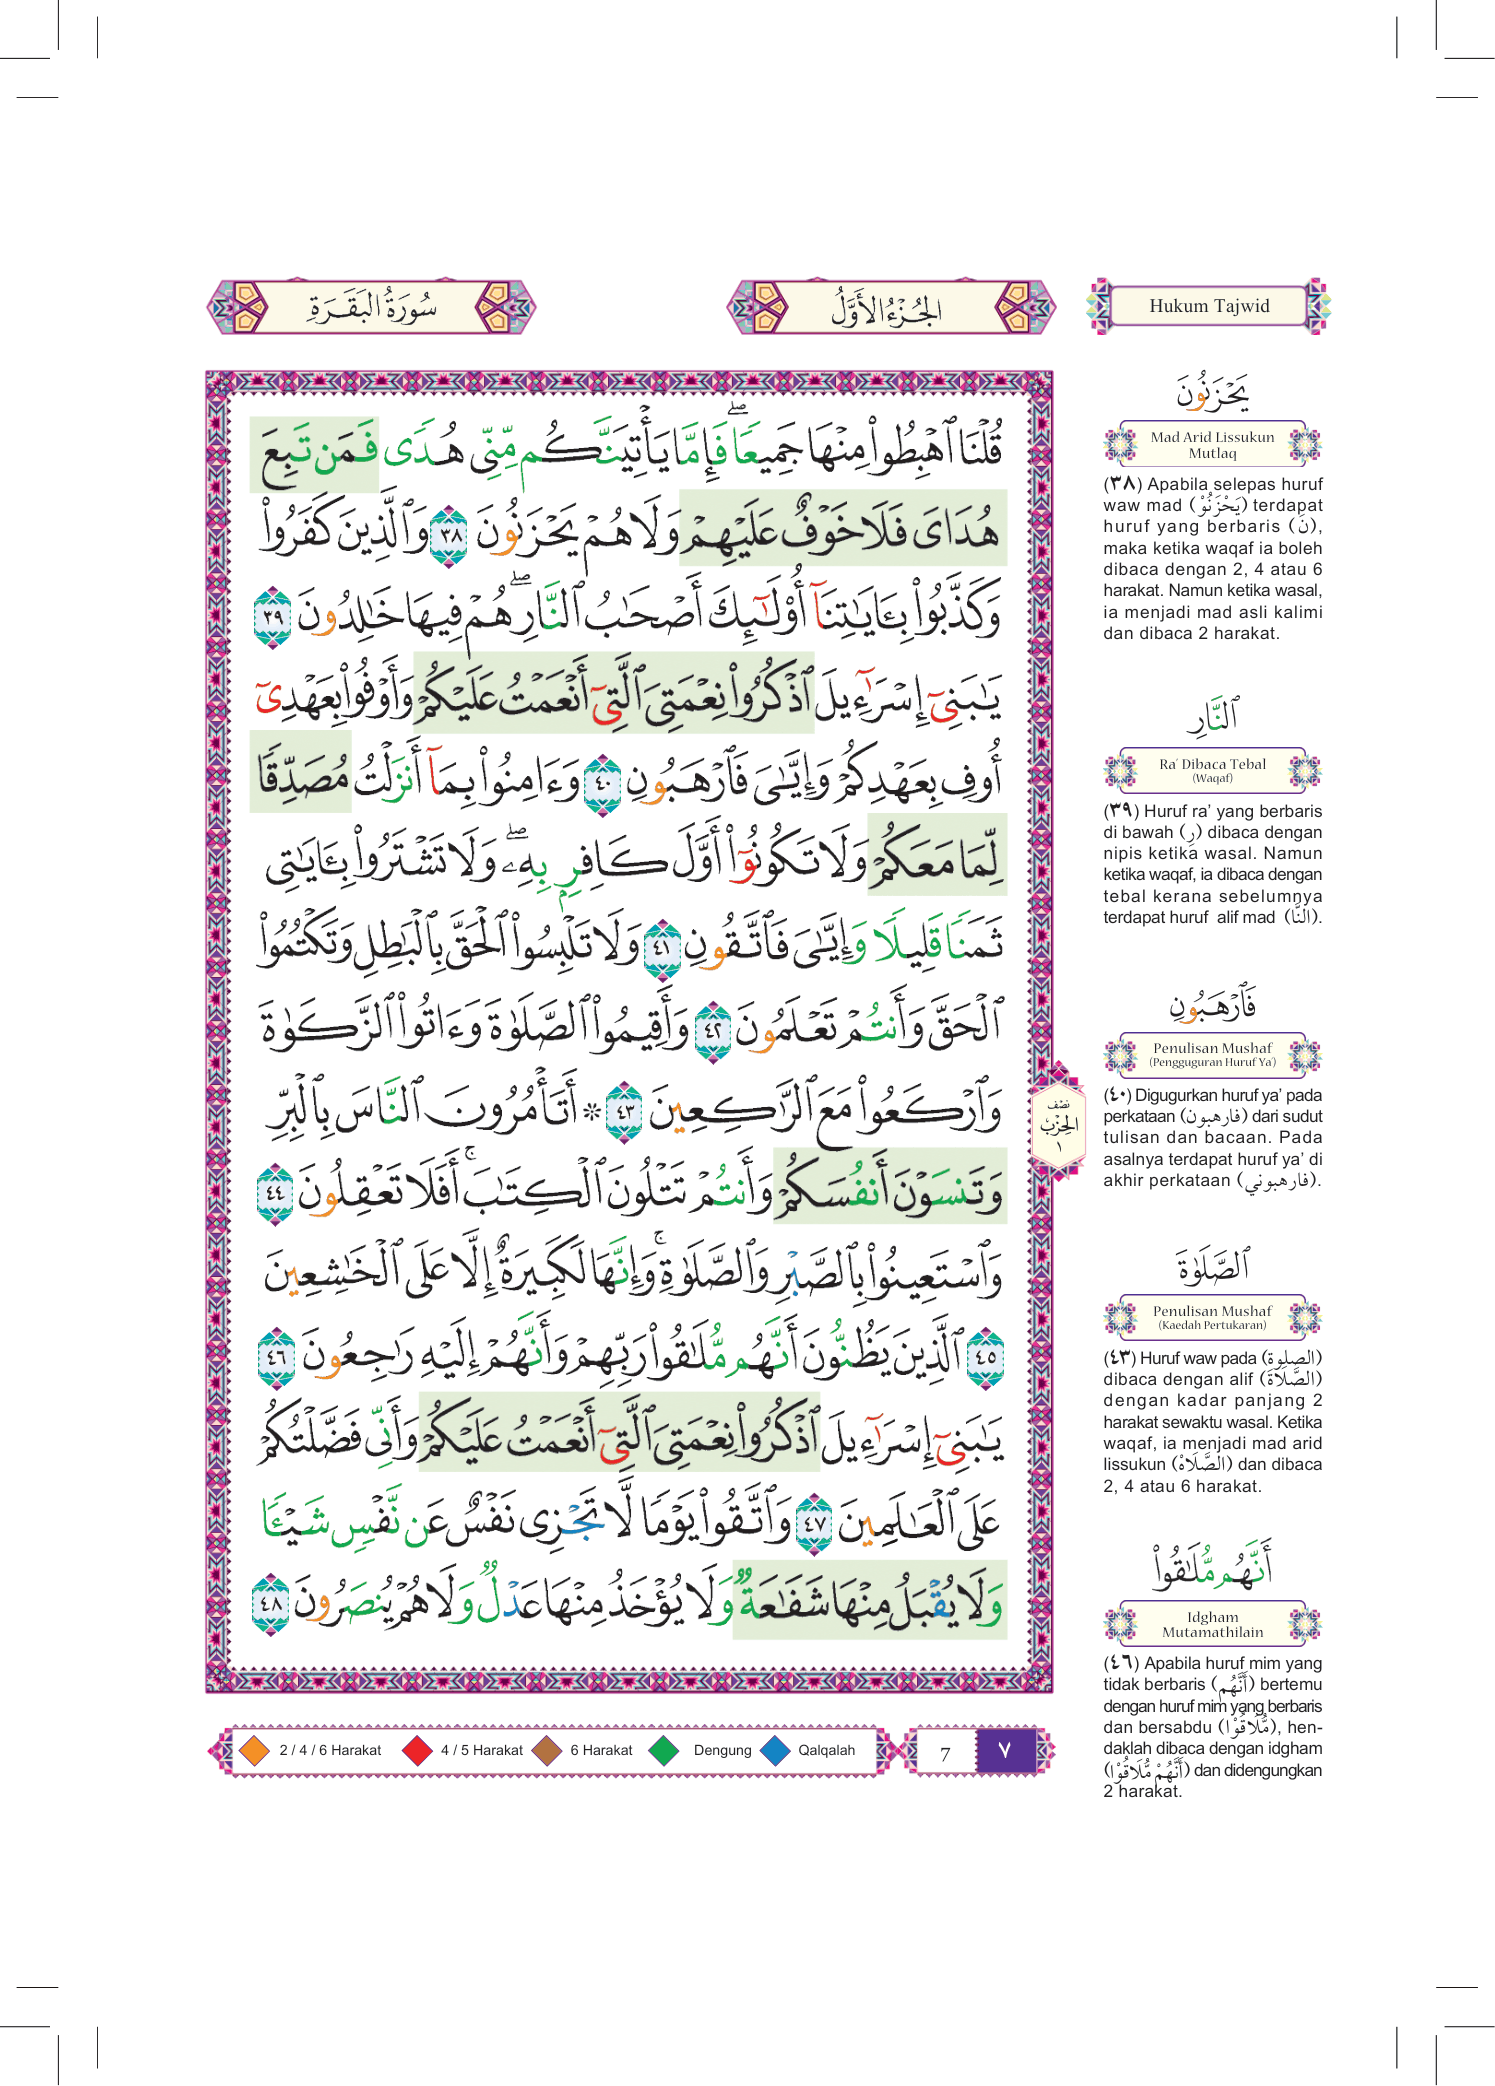 سُورَةُ الْبَقَرَةِ
الجُزْءُ الأَوَّلُ
Hukum Tajwid
قُلْنَا ٱهْبِطُوا۟ مِنْهَا جَمِيعًا ۖ فَإِمَّا يَأْتِيَنَّكُم مِّنِّى هُدًى فَمَن تَبِعَ
هُدَاىَ فَلَا خَوْفٌ عَلَيْهِمْ وَلَا هُمْ يَحْزَنُونَ ٣٨ وَٱلَّذِينَ كَفَرُوا۟
وَكَذَّبُوا۟ بِـَٔايَـٰتِنَآ أُو۟لَـٰٓئِكَ أَصْحَـٰبُ ٱلنَّارِ ۖ هُمْ فِيهَا خَـٰلِدُونَ ٣٩
يَـٰبَنِىٓ إِسْرَٰٓءِيلَ ٱذْكُرُوا۟ نِعْمَتِىَ ٱلَّتِىٓ أَنْعَمْتُ عَلَيْكُمْ وَأَوْفُوا۟ بِعَهْدِىٓ
أُوفِ بِعَهْدِكُمْ وَإِيَّـٰىَ فَٱرْهَبُونِ ٤٠ وَءَامِنُوا۟ بِمَآ أَنزَلْتُ مُصَدِّقًا
لِّمَا مَعَكُمْ وَلَا تَكُونُوٓا۟ أَوَّلَ كَافِرٍۭ بِهِۦ ۖ وَلَا تَشْتَرُوا۟ بِـَٔايَـٰتِى
ثَمَنًا قَلِيلًا وَإِيَّـٰىَ فَٱتَّقُونِ ٤١ وَلَا تَلْبِسُوا۟ ٱلْحَقَّ بِٱلْبَـٰطِلِ وَتَكْتُمُوا۟
ٱلْحَقَّ وَأَنتُمْ تَعْلَمُونَ ٤٢ وَأَقِيمُوا۟ ٱلصَّلَوٰةَ وَءَاتُوا۟ ٱلزَّكَوٰةَ
وَٱرْكَعُوا۟ مَعَ ٱلرَّٰكِعِينَ ٤٣ ۞ أَتَأْمُرُونَ ٱلنَّاسَ بِٱلْبِرِّ
وَتَنسَوْنَ أَنفُسَكُمْ وَأَنتُمْ تَتْلُونَ ٱلْكِتَـٰبَ ۚ أَفَلَا تَعْقِلُونَ ٤٤
وَٱسْتَعِينُوا۟ بِٱلصَّبْرِ وَٱلصَّلَوٰةِ ۚ وَإِنَّهَا لَكَبِيرَةٌ إِلَّا عَلَى ٱلْخَـٰشِعِينَ
٤٥ ٱلَّذِينَ يَظُنُّونَ أَنَّهُم مُّلَـٰقُوا۟ رَبِّهِمْ وَأَنَّهُمْ إِلَيْهِ رَٰجِعُونَ ٤٦
يَـٰبَنِىٓ إِسْرَٰٓءِيلَ ٱذْكُرُوا۟ نِعْمَتِىَ ٱلَّتِىٓ أَنْعَمْتُ عَلَيْكُمْ وَأَنِّى فَضَّلْتُكُمْ
عَلَى ٱلْعَـٰلَمِينَ ٤٧ وَٱتَّقُوا۟ يَوْمًا لَّا تَجْزِى نَفْسٌ عَن نَّفْسٍ شَيْـًٔا
وَلَا يُقْبَلُ مِنْهَا شَفَـٰعَةٌ وَلَا يُؤْخَذُ مِنْهَا عَدْلٌ وَلَا هُمْ يُنصَرُونَ ٤٨
نصف
الحِزْبُ
١
يَحْزَنُونَ
Mad Arid Lissukun
Mutlaq
(٣٨) Apabila selepas huruf
waw mad (يَحْزَنُوْ) terdapat
huruf yang berbaris (نَ),
maka ketika waqaf ia boleh
dibaca dengan 2, 4 atau 6
harakat. Namun ketika wasal,
ia menjadi mad asli kalimi
dan dibaca 2 harakat.
ٱلنَّارِ
Ra' Dibaca Tebal
(Waqaf)
(٣٩) Huruf ra' yang berbaris
di bawah (رِ) dibaca dengan
nipis ketika wasal. Namun
ketika waqaf, ia dibaca dengan
tebal kerana sebelumnya
terdapat huruf alif mad (النَّا).
فَٱرْهَبُونِ
Penulisan Mushaf
(Pengguguran Huruf Ya')
(٤٠) Digugurkan huruf ya' pada
perkataan (فارهبون) dari sudut
tulisan dan bacaan. Pada
asalnya terdapat huruf ya' di
akhir perkataan (فارهبوني).
ٱلصَّلَوٰةَ
Penulisan Mushaf
(Kaedah Pertukaran)
(٤٣) Huruf waw pada (الصلوة)
dibaca dengan alif (الصَّلَاةَ)
dengan kadar panjang 2
harakat sewaktu wasal. Ketika
waqaf, ia menjadi mad arid
lissukun (الصَّلَاهْ) dan dibaca
2, 4 atau 6 harakat.
أَنَّهُم مُّلَـٰقُوا۟
Idgham
Mutamathilain
(٤٦) Apabila huruf mim yang
tidak berbaris (أَنَّهُم) bertemu
dengan huruf mim yang berbaris
dan bersabdu (مُّلَاقُوْا), hen-
daklah dibaca dengan idgham
(أَنَّهُمْ مُّلَاقُوْا) dan didengungkan
2 harakat.
2 / 4 / 6 Harakat 4 / 5 Harakat 6 Harakat Dengung Qalqalah
7 ٧